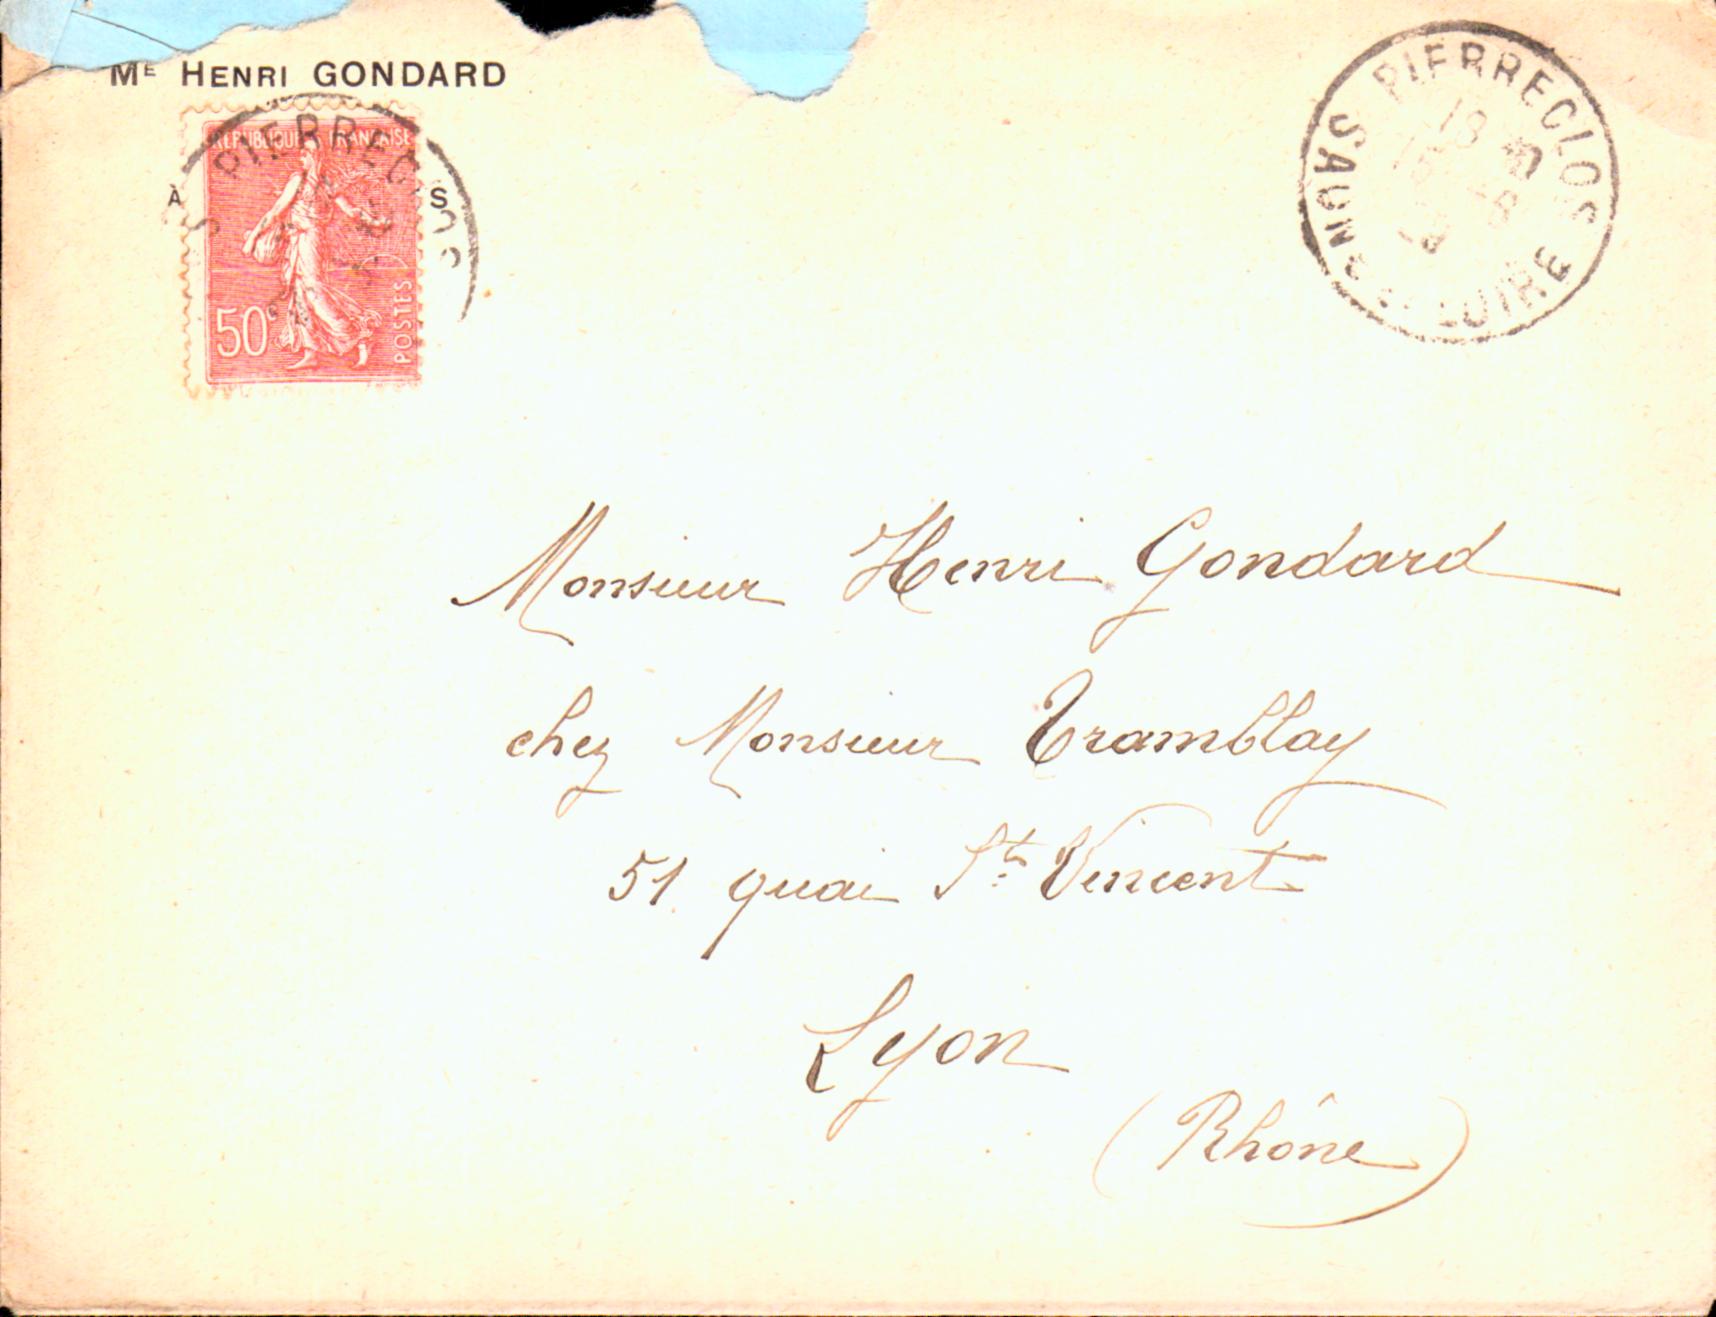 Mᴱ HENRI GONDARD
À S
RÉPUBLIQUE FRANÇAISE
50c
POSTES
PIERRECLOS
PIERRECLOS
SAONE-ET-LOIRE
Monsieur Henri Gondard
chez Monsieur Tramblay
51 quai St Vincent
Lyon
(Rhône)